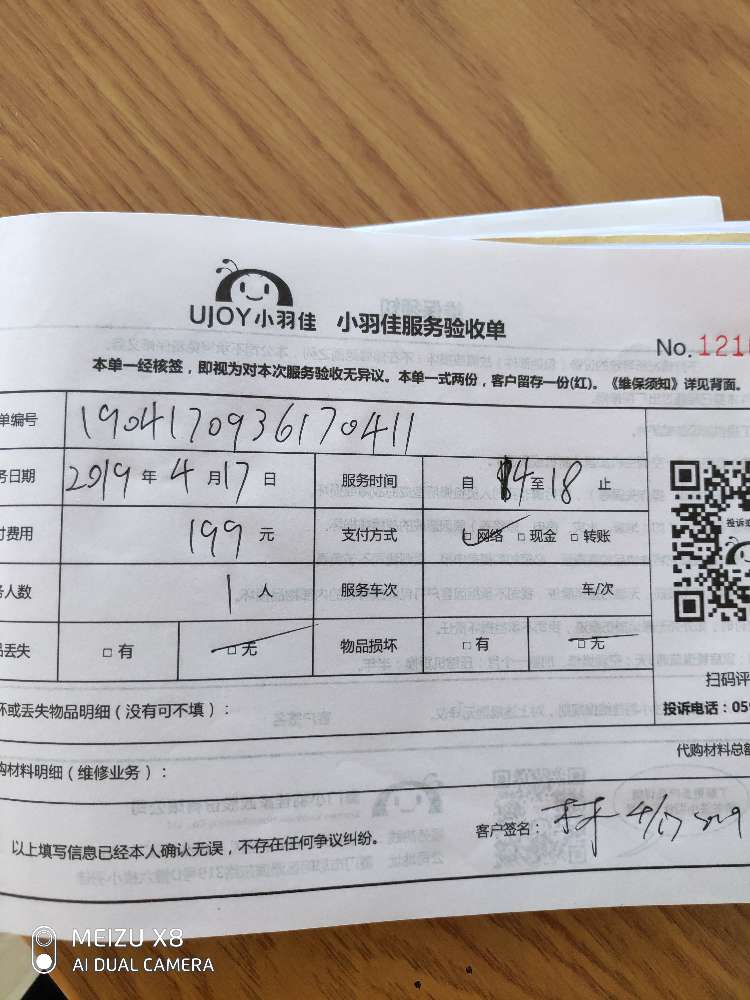 UJOY小羽佳 小羽佳服务验收单
No. 1210
本单一经核签，即视为对本次服务验收无异议。本单一式两份，客户留存一份(红)。《维保须知》详见背面。
单编号 1904170936170411
务日期 2019 年 4 月 17 日 服务时间 自 14 至 18 止
付费用 199 元 支付方式 □ 网络 □ 现金 □ 转账
务人数 1 人 服务车次 车/次
品丢失 □ 有 □ 无 物品损坏 □ 有 □ 无
扫码评
投诉电话：059
坏或丢失物品明细（没有可不填）：
代购材料总额
购材料明细（维修业务）：
以上填写信息已经本人确认无误，不存在任何争议纠纷。 客户签名： 4/17 2019
MEIZU X8
AI DUAL CAMERA